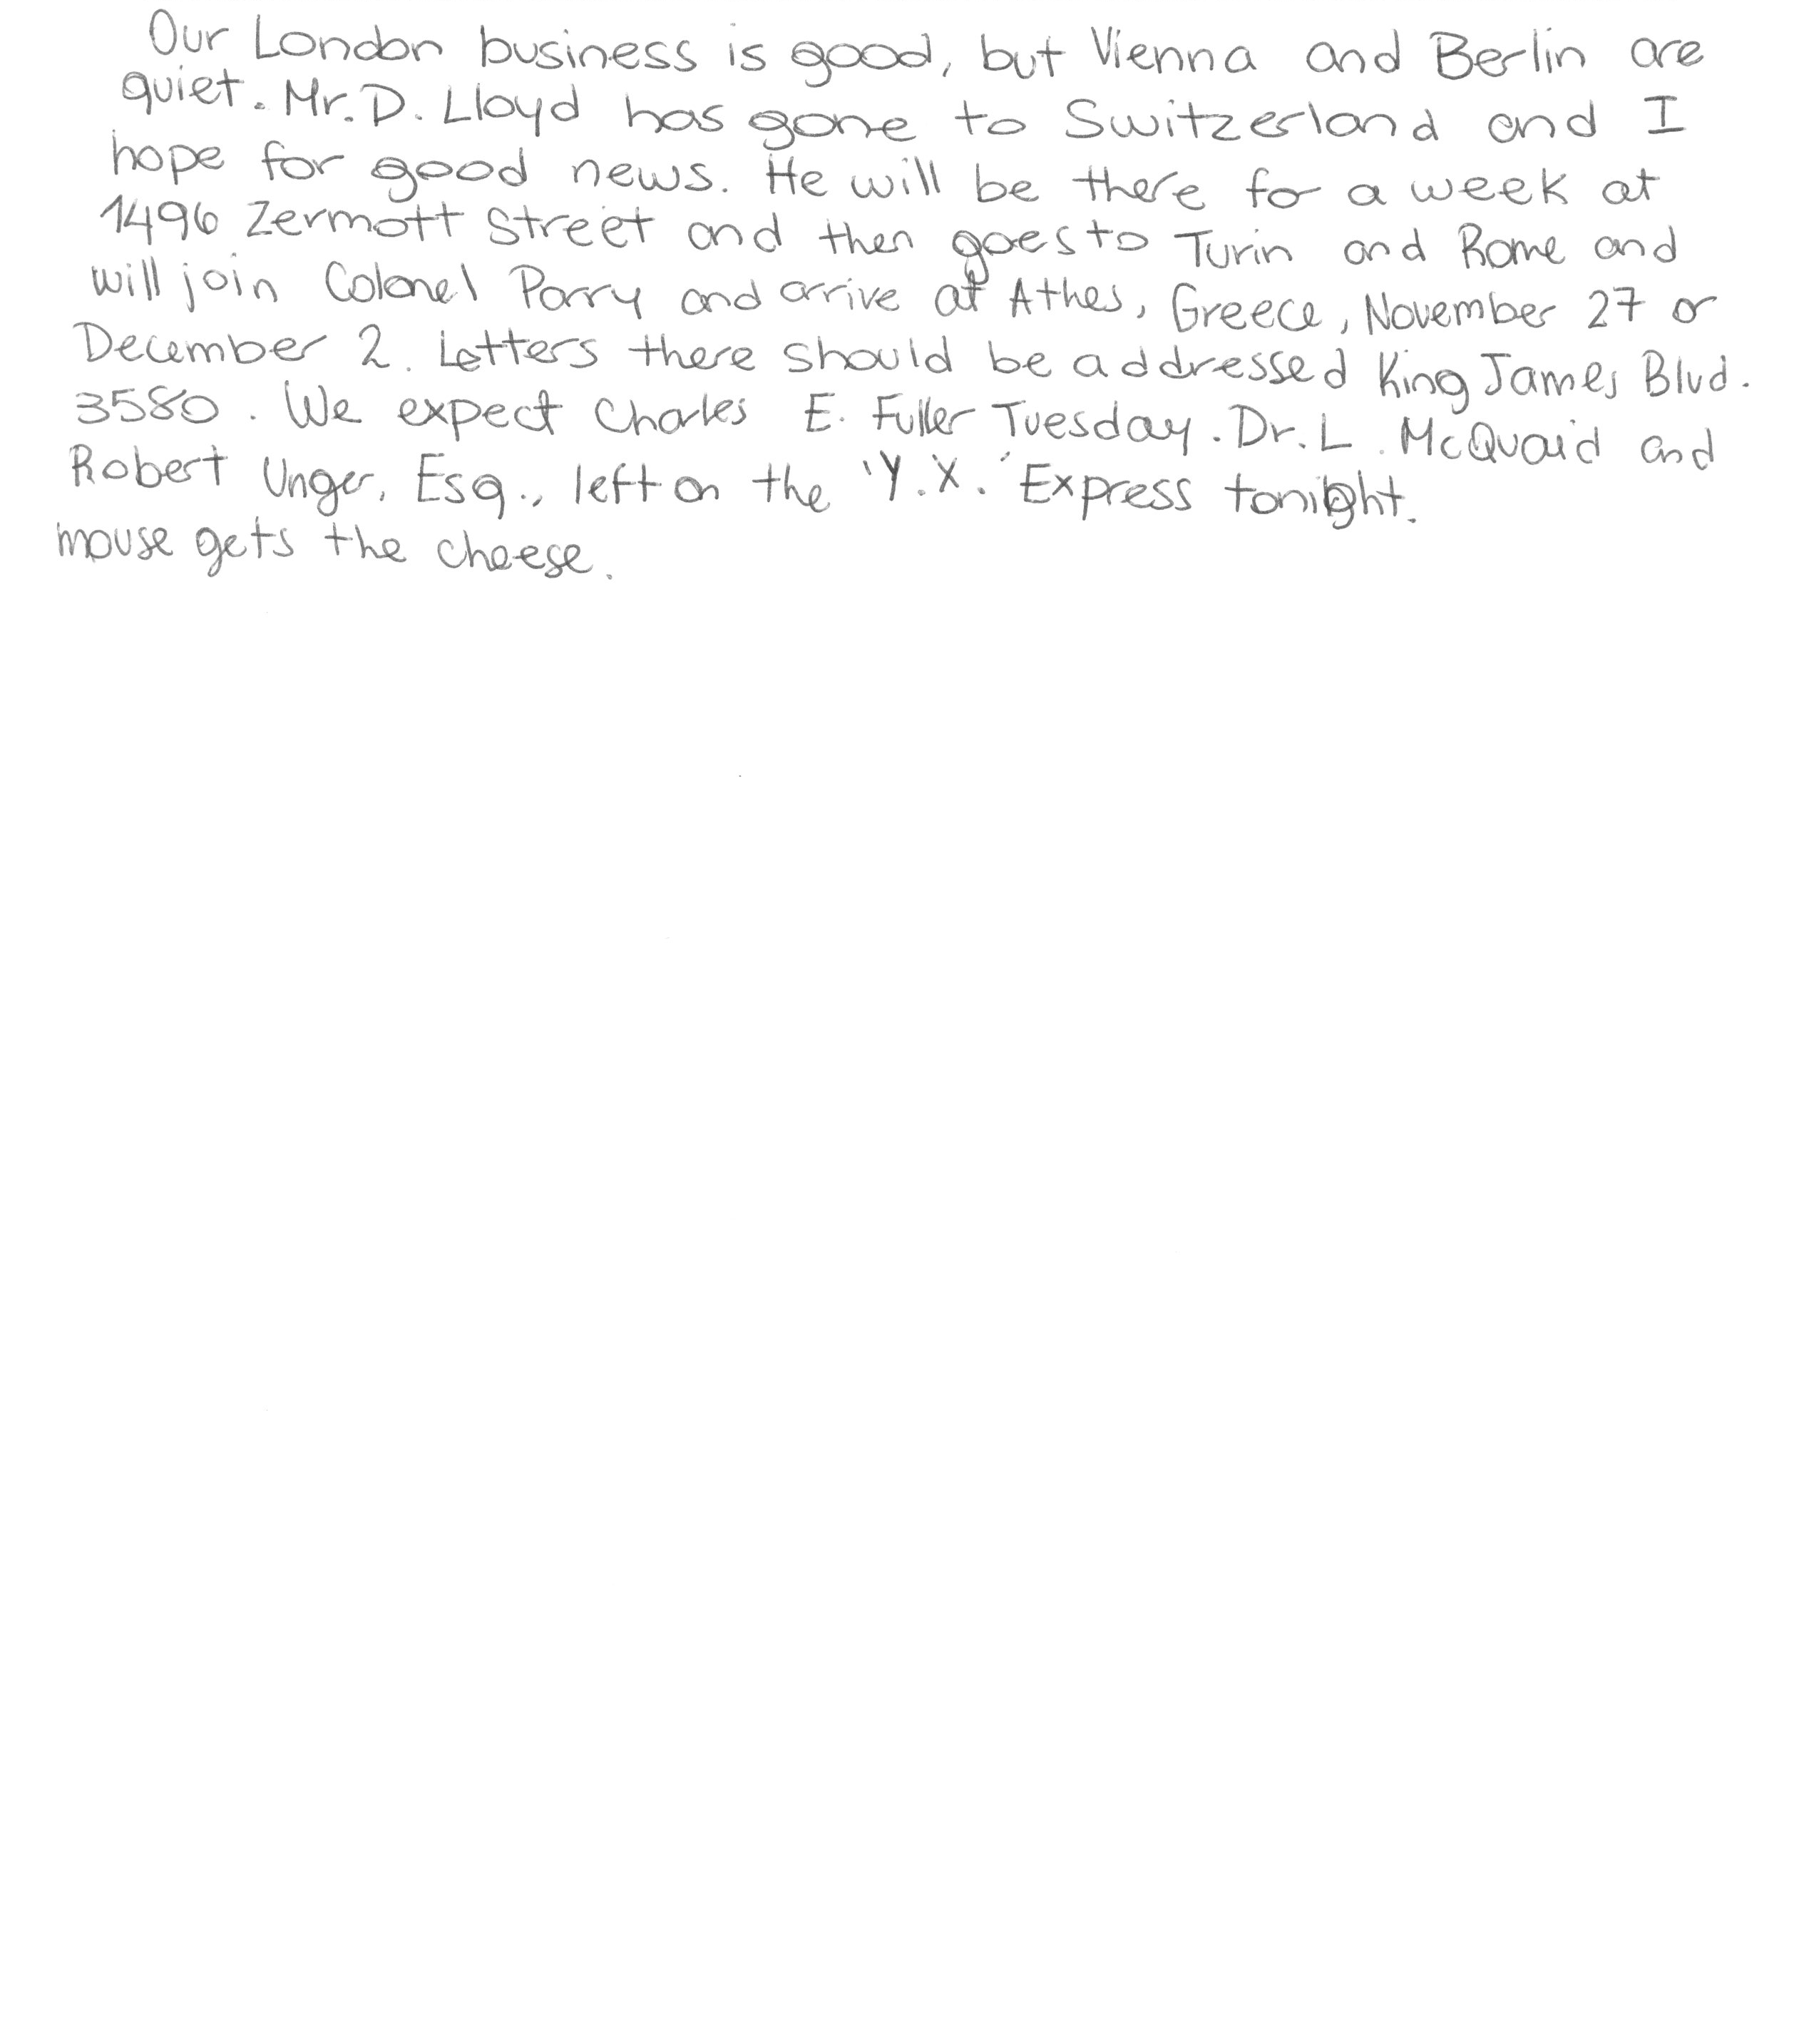 Our London business is good, but Vienna and Berlin are
quiet. Mr. D. Lloyd has gone to Switzerland and I
hope for good news. He will be there for a week at
1496 Zermott Street and then goes to Turin and Rome and
will join Colonel Parry and arrive at Athes, Greece, November 27 or
December 2. Letters there should be addressed King James Blvd.
3580. We expect Charles E. Fuller Tuesday. Dr. L. McQuaid and
Robert Unger, Esq., left on the 'Y.X.' Express tonight.
mouse gets the cheese.